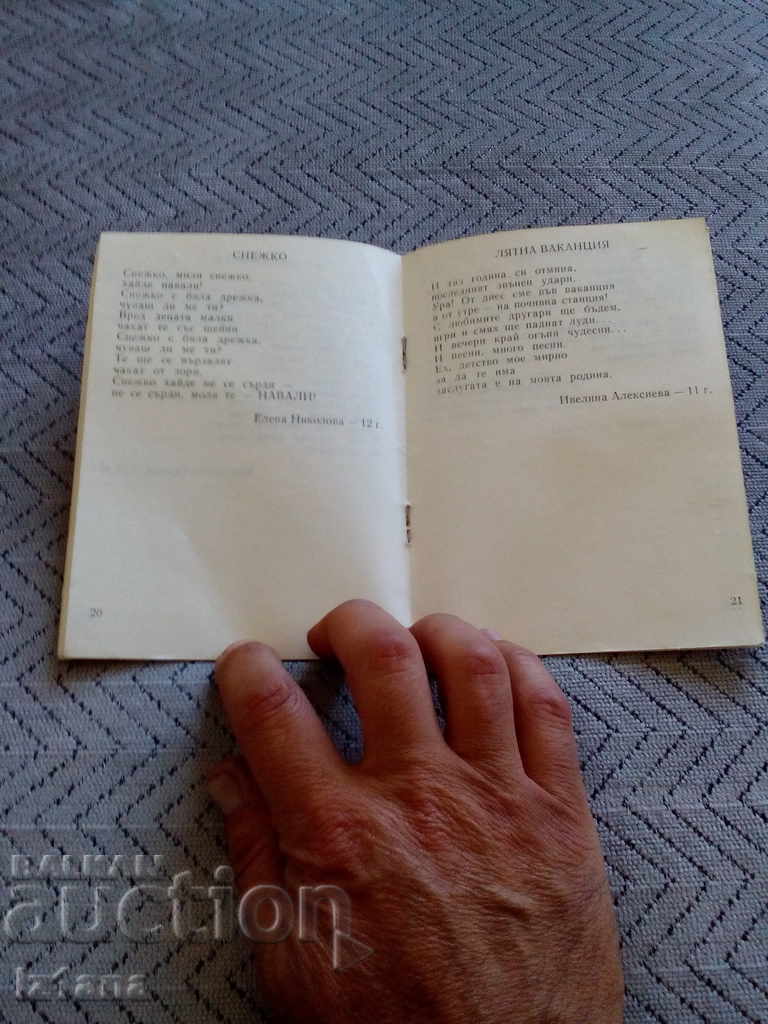 СНЕЖКО
Снежко, мили снежко,
хайде навали!
Снежко с бяла дрежка,
чуваш ли ме ти?
Вред децата малки
чакат те със шейни
Снежко с бяла дрежка,
чуваш ли ме ти?
Те ще се вързалят
чакат от зори.
Снежко хайде не се сърди —
не се сърди, моля те — НАВАЛИ!
Елена Николова — 12 г.
20
ЛЯТНА ВАКАНЦИЯ
И таз година, си отмина,
последният звънец удари..
Ура! От днес сме във ваканция
а от утре — на почивна станция!
С любимите другари ще бъдем,
игри и смях ще паднат луди...
И вечери край огъня чудесни...
И песни, много песни.
Ех, детство мое мирно
за да те има
заслугата е на моята родина.
Ивелина Алексиева — 11 г.
21
BALKAN
auction
iz1ana